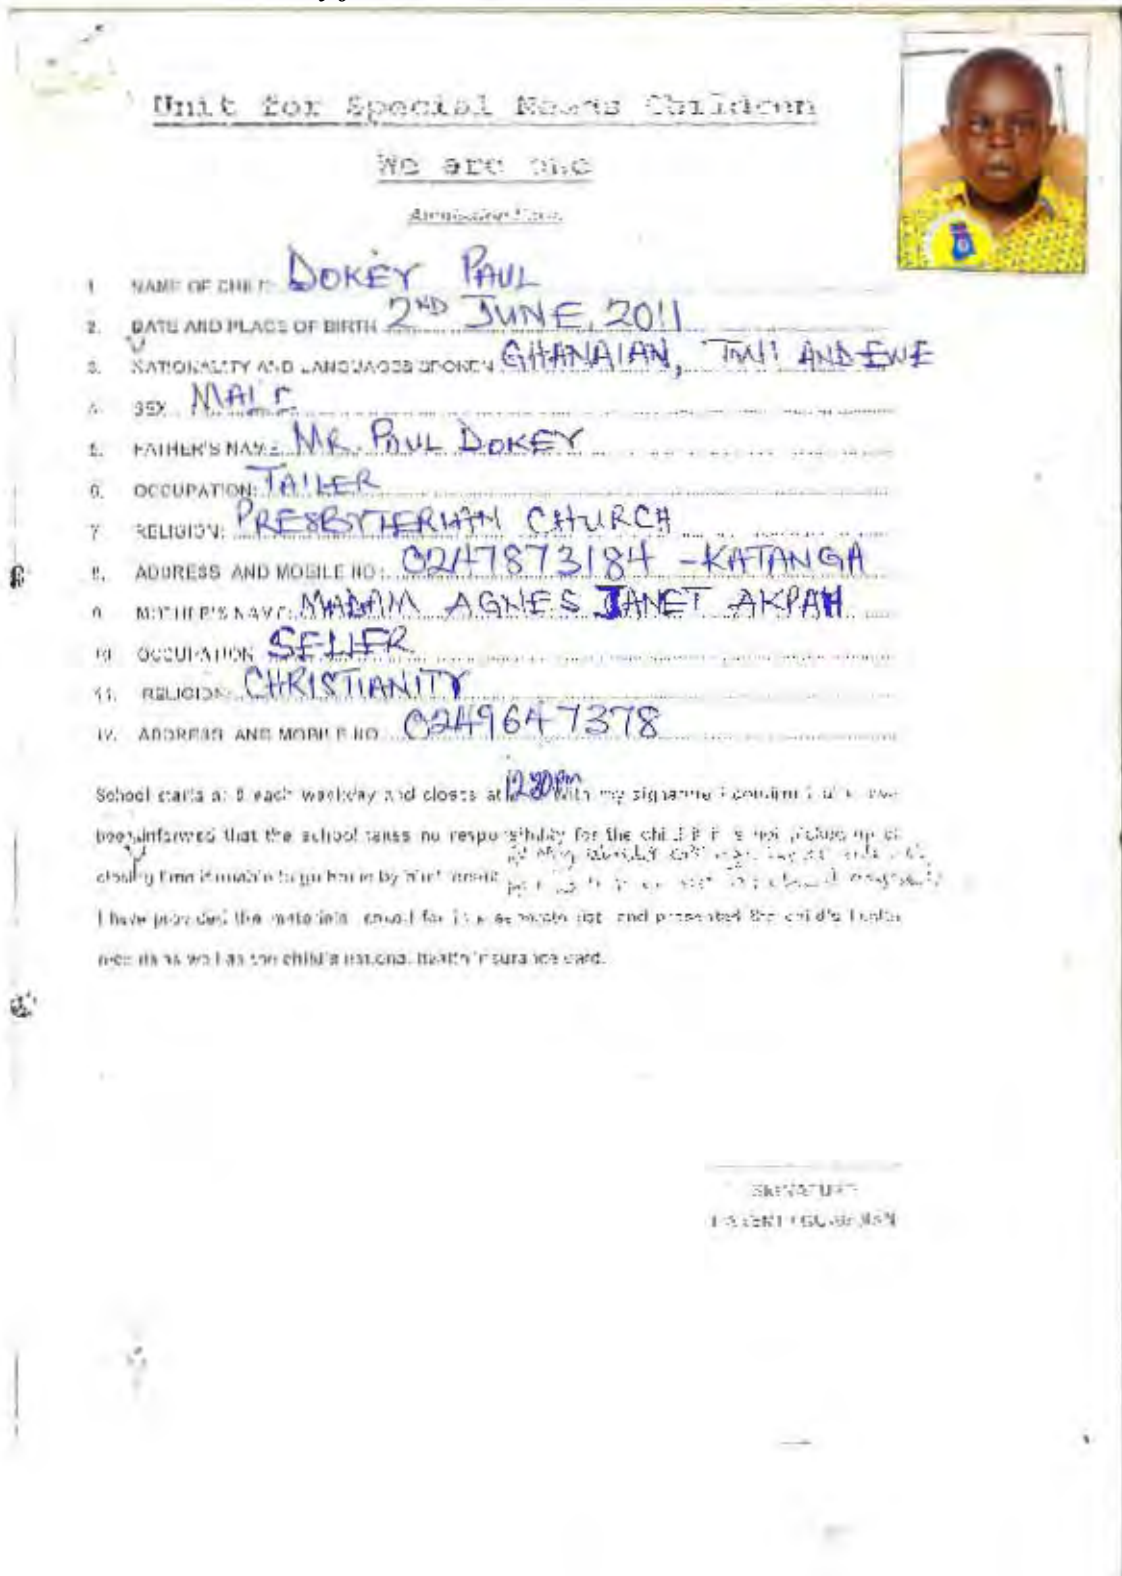 Unit for Special Needs Children
We are one
1. NAME OF CHILD: DOKEY PAUL
2. DATE AND PLACE OF BIRTH 2ND JUNE, 2011
3. NATIONALITY AND LANGUAGES SPOKEN GHANAIAN, TWI AND EWE
4. SEX MALE
5. FATHER'S NAME: MR. PAUL DOKEY
6. OCCUPATION: TAILER
7. RELIGION: PRESBYTERIAN CHURCH
8. ADDRESS AND MOBILE NO: 0247873184 - KATANGA
9. MOTHER'S NAME: MADAM AGNES JANET AKPAH
10. OCCUPATION SELLER
11. RELIGION: CHRISTIANITY
12. ADDRESS AND MOBILE NO 0249647378
School starts at 8 each weekday and closes at 12:30pm With my signature I confirm
been informed that the school takes no responsibility for the child if it is not picked up at
closing time
I have provided the materials for in a separate list and presented the child's health
records as well as the child's national health insurance card.
SIGNATURE
PARENT / GUARDIAN